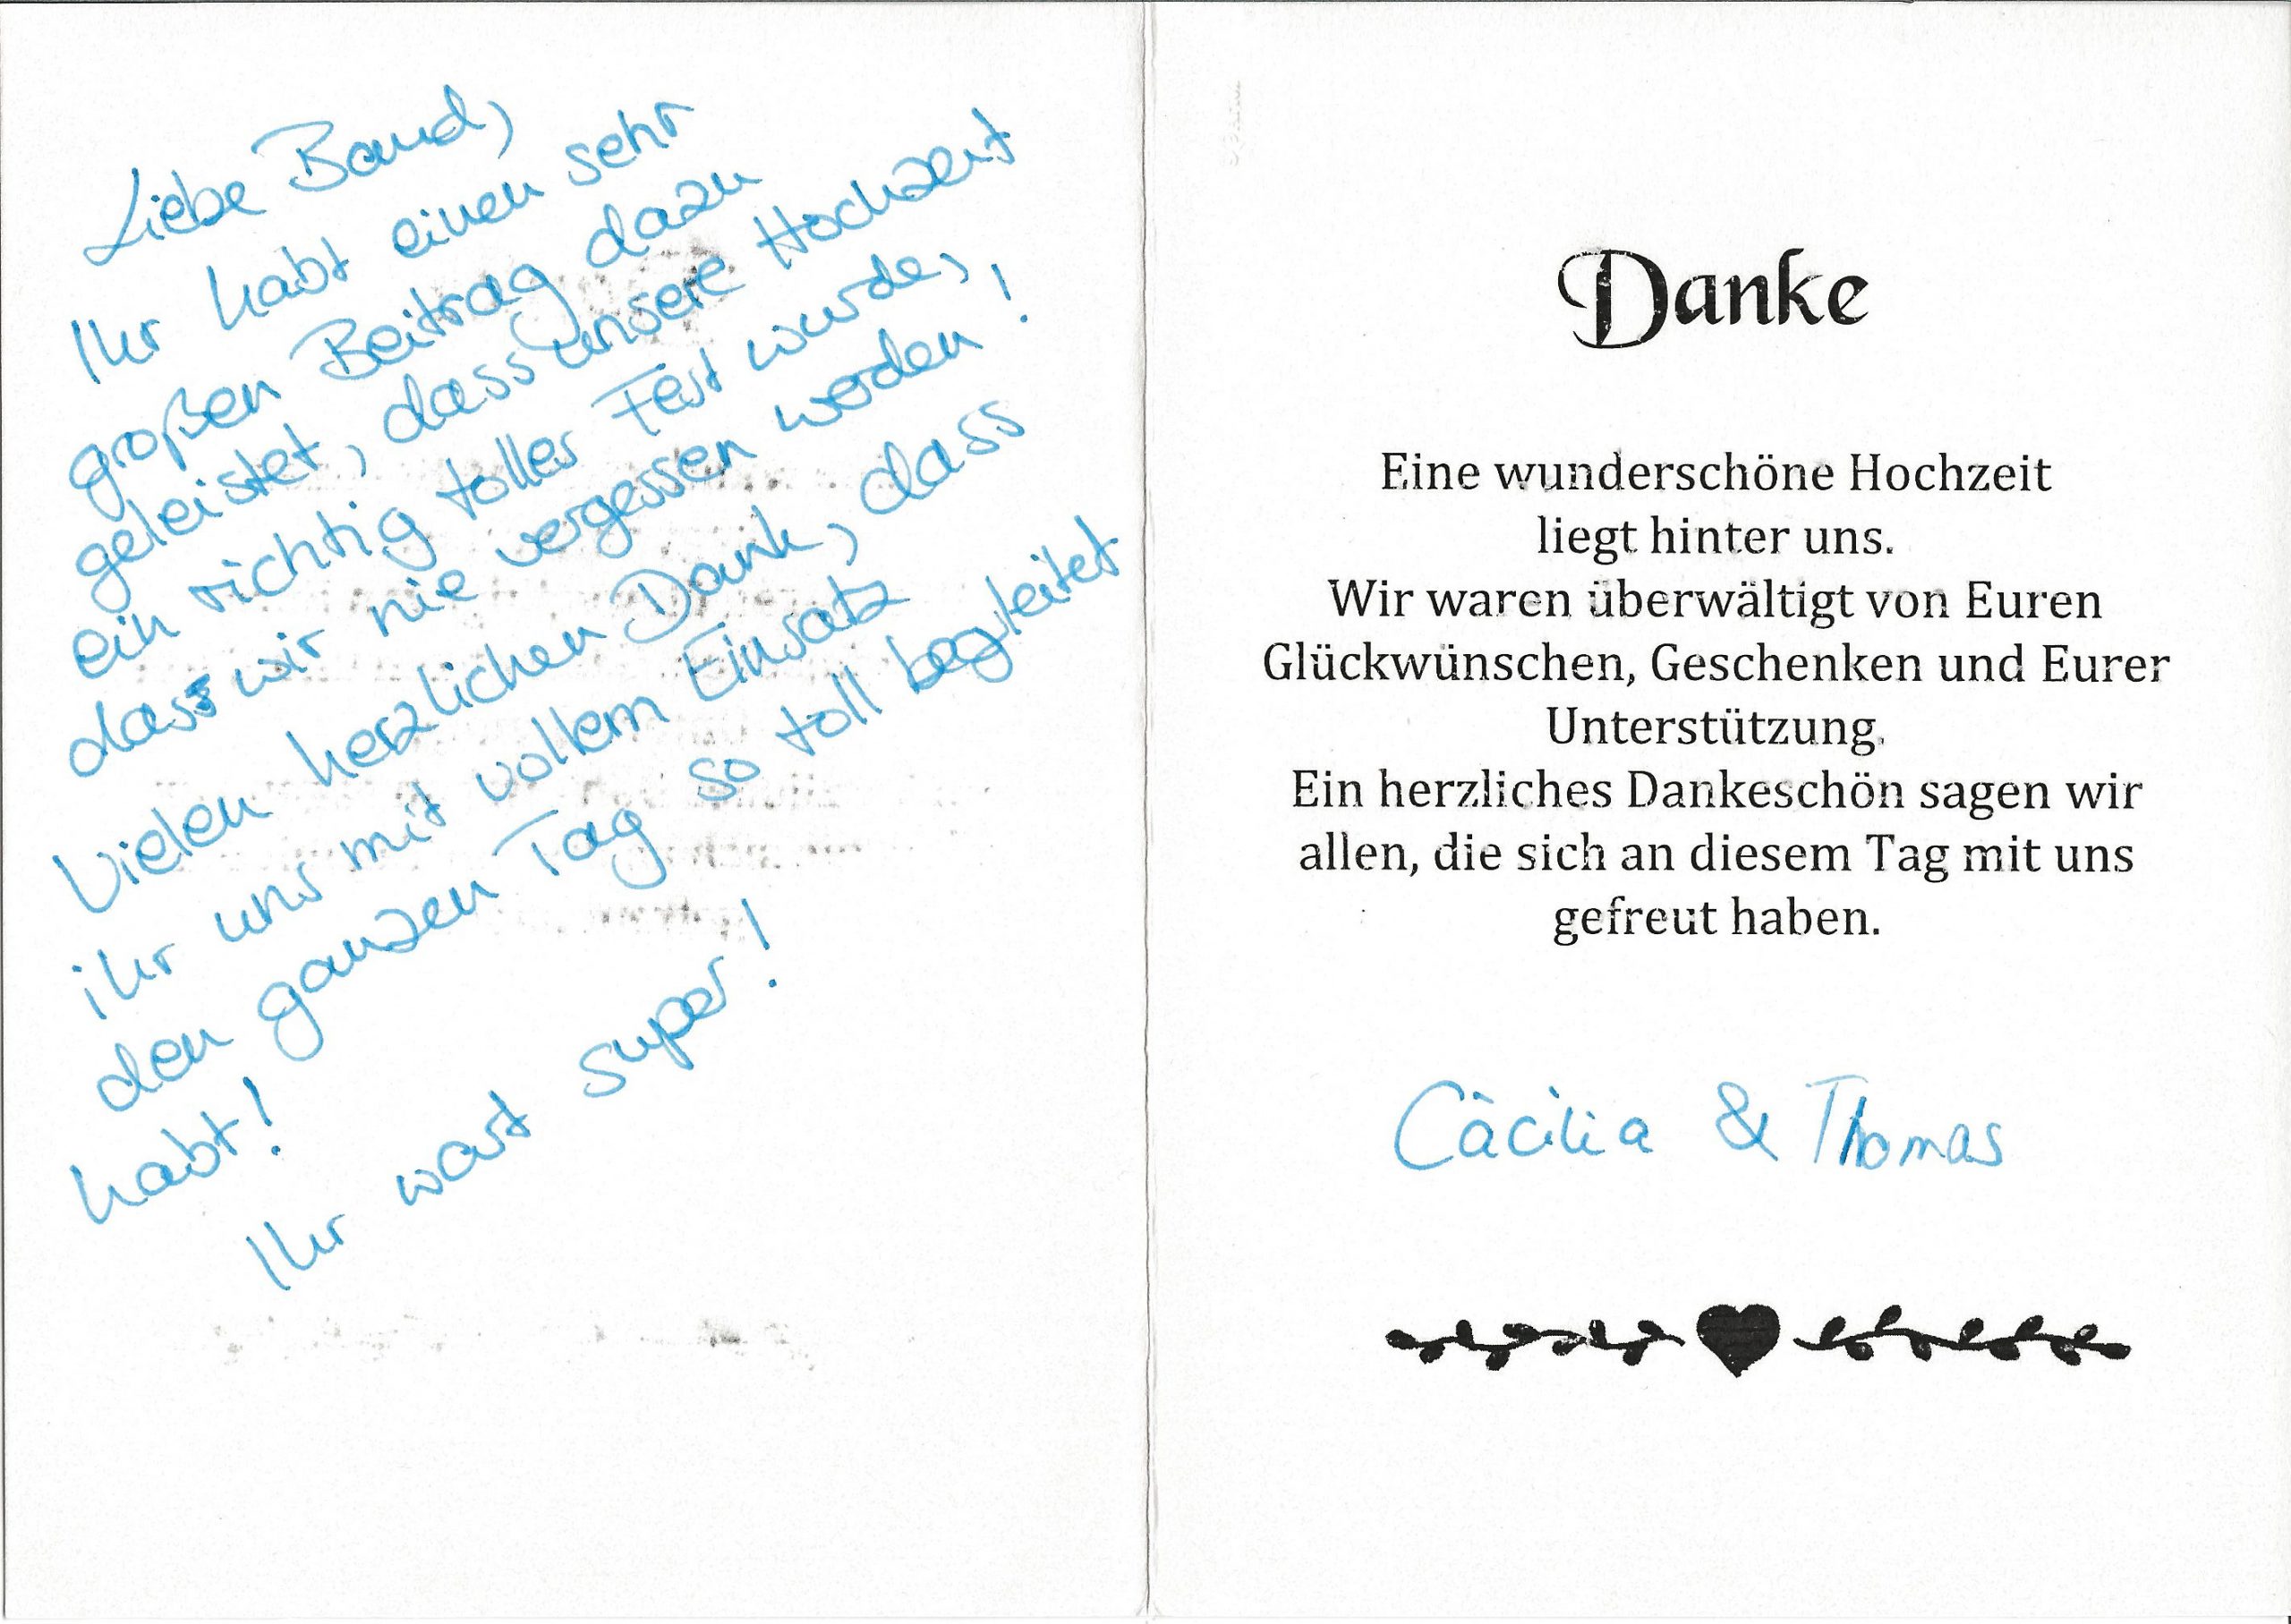 Liebe Band,
Ihr habt einen sehr
großen Beitrag dazu
geleistet, dass unsere Hochzeit
ein richtig tolles Fest wurde,
dass wir nie vergessen werden!
Vielen herzlichen Dank, dass
ihr uns mit vollem Einsatz
den ganzen Tag so toll begleitet
habt!
Ihr wart super!
Danke
Eine wunderschöne Hochzeit
liegt hinter uns.
Wir waren überwältigt von Euren
Glückwünschen, Geschenken und Eurer
Unterstützung.
Ein herzliches Dankeschön sagen wir
allen, die sich an diesem Tag mit uns
gefreut haben.
Cäcilia & Thomas